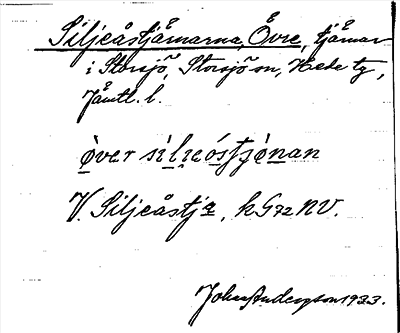 Siljeåstjärnarna, Övre, tjärnar
i Storsjö, Storsjö sn, Hede tg,
Jämtl. l.
òver sìljeóstjònan
V. Siljeåstja, k G72 NV.
John Anderzson 1933.